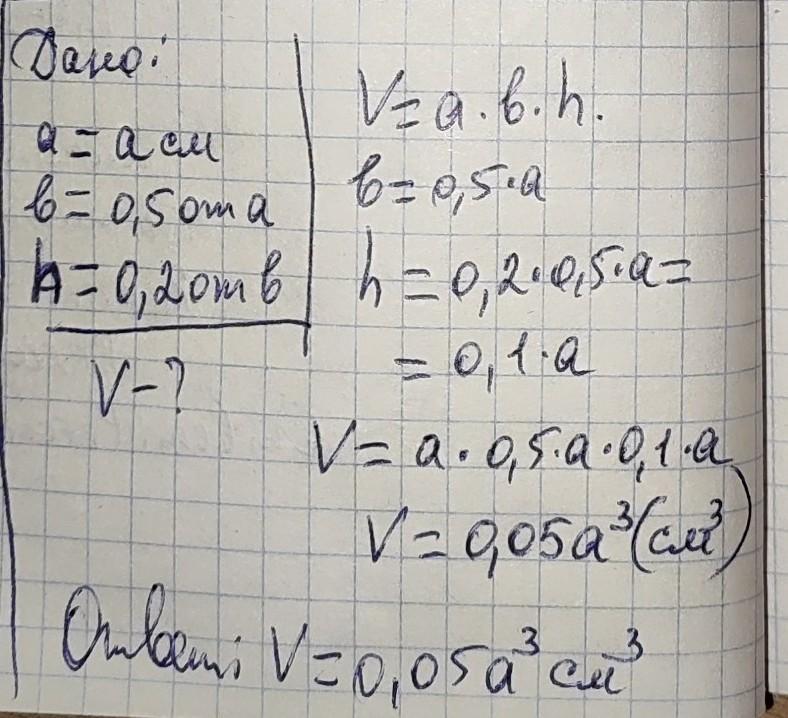 Дано:
a = a см
в = 0,5 от a
h = 0,2 от в
V - ?
V = a · в · h.
в = 0,5 · a
h = 0,2 · 0,5 · a =
= 0,1 · a
V = a · 0,5 · a · 0,1 · a
V = 0,05a³ (см³)
Ответ: V = 0,05a³ см³